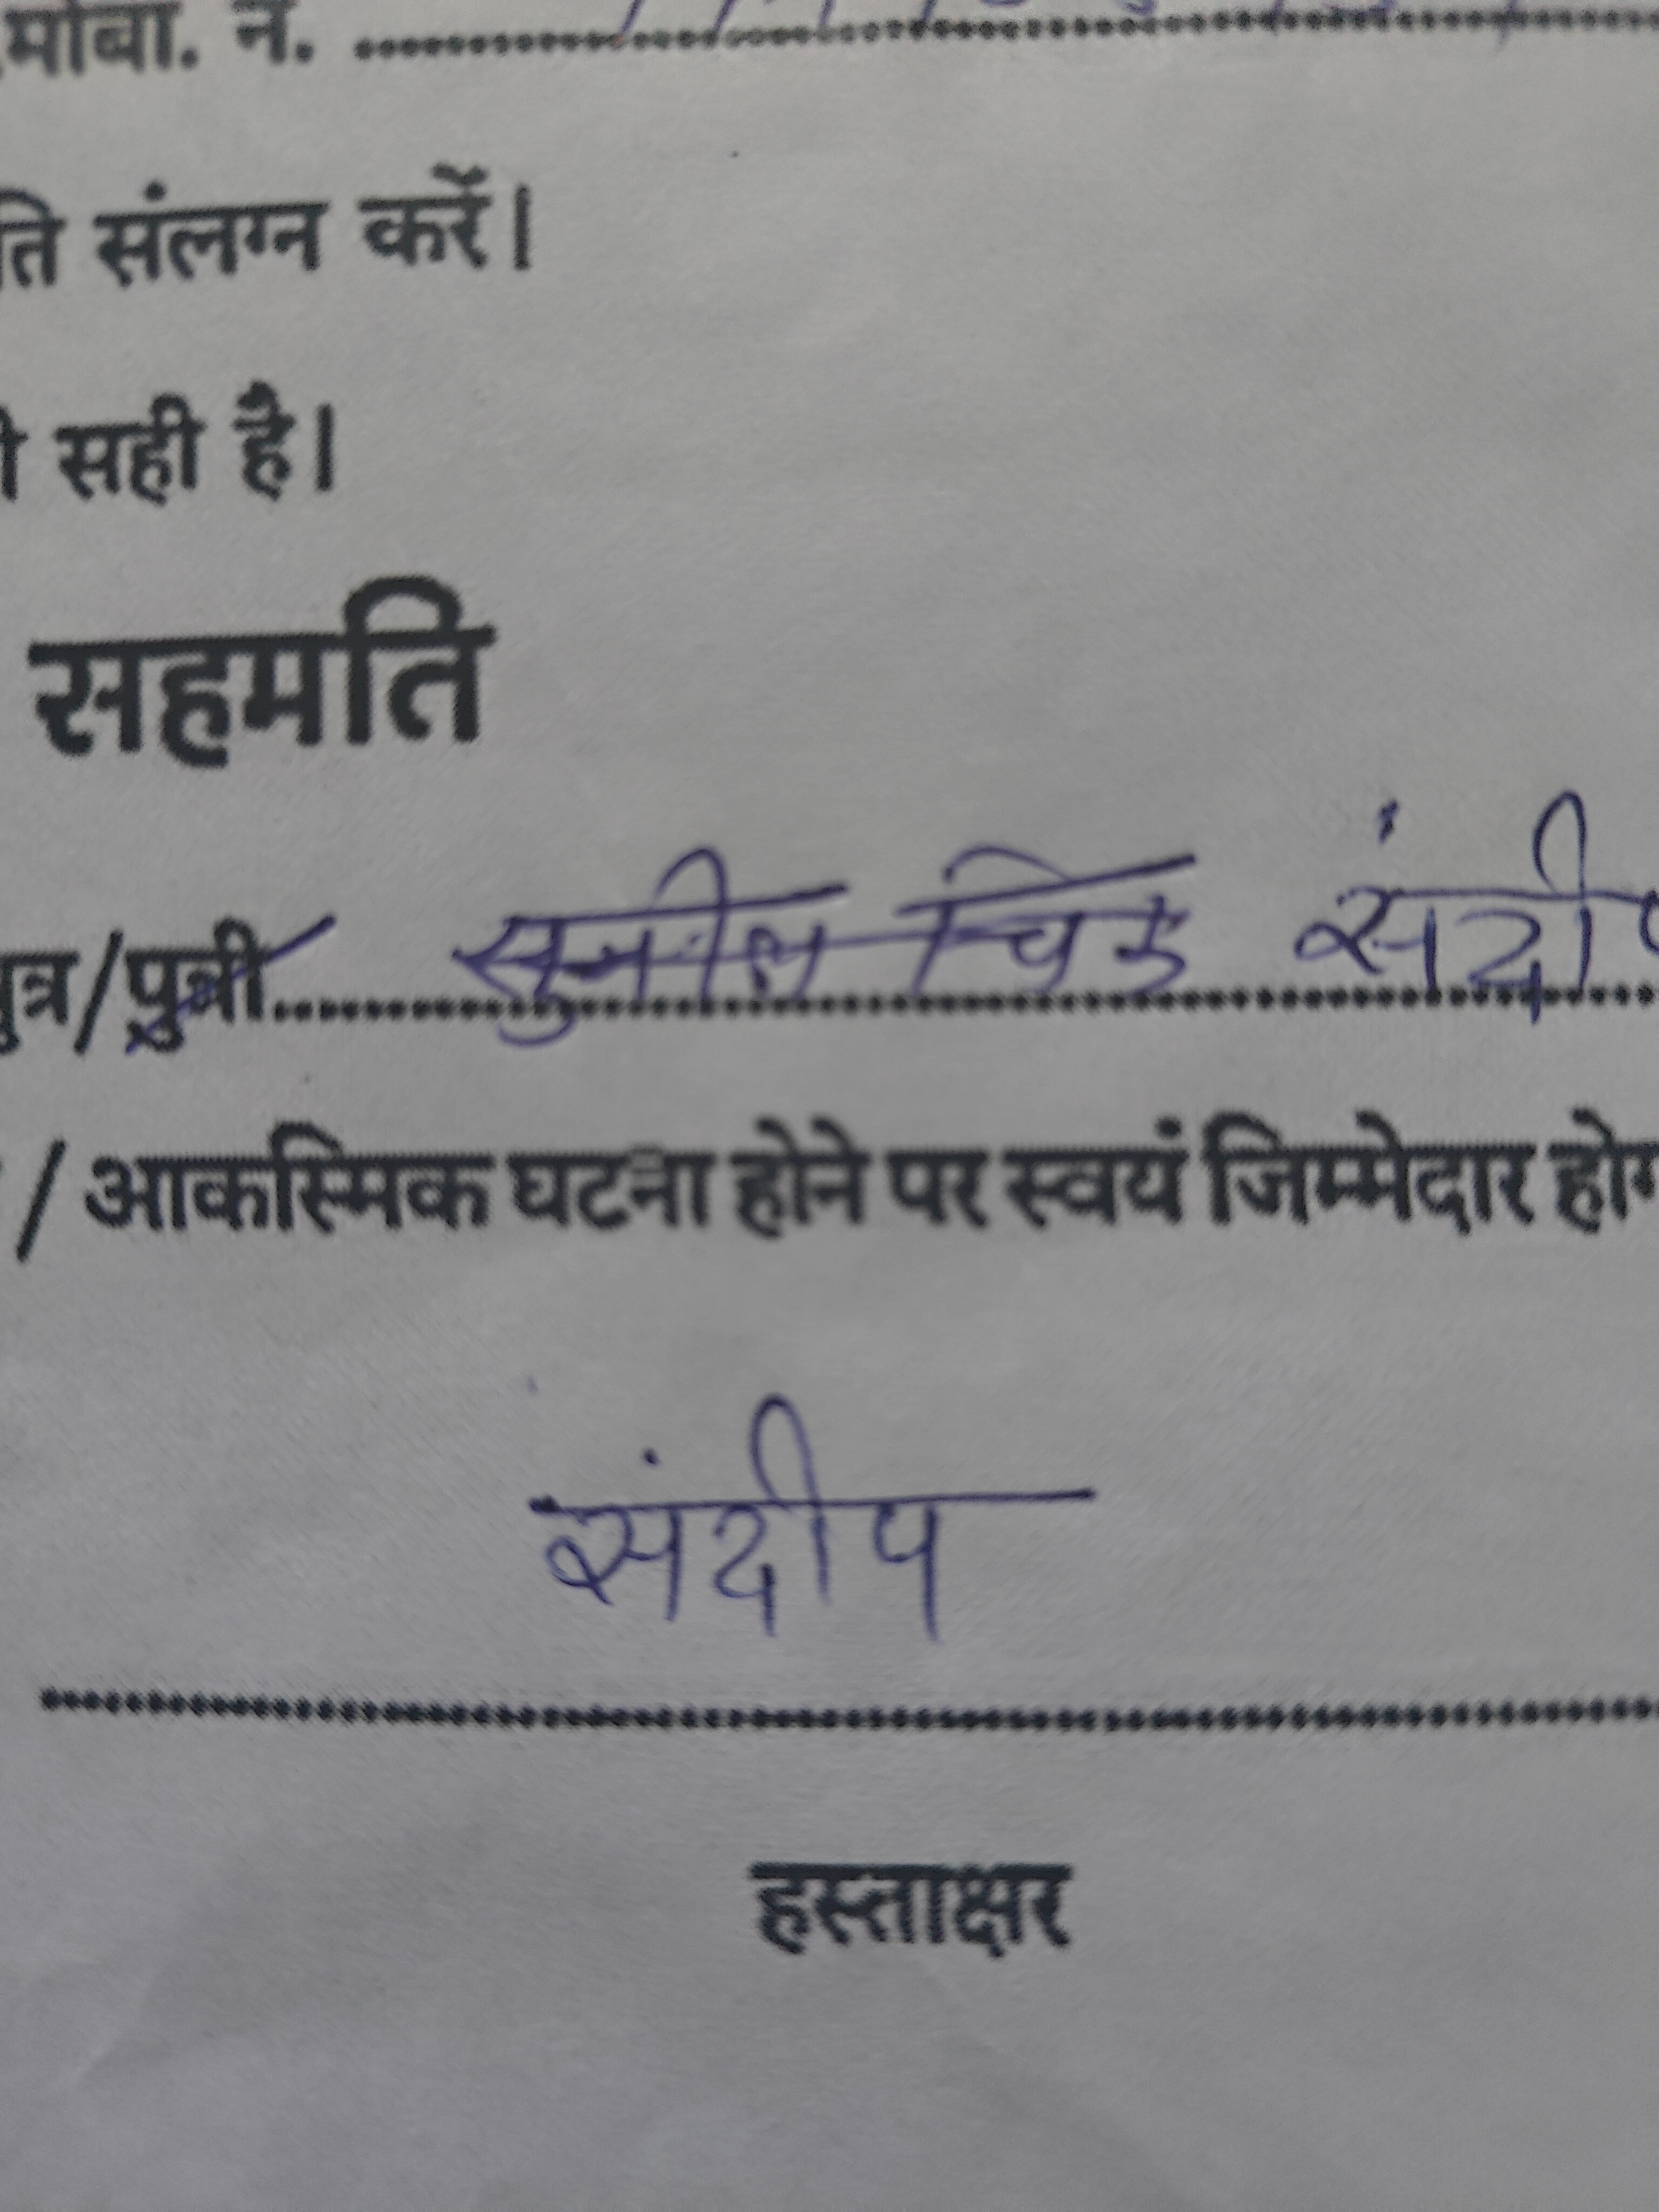 मोबा. नं.
ति संलग्न करें।
ी सही है।
सहमति
पुत्र/पुत्री सुनील चिड संदीप
/ आकस्मिक घटना होने पर स्वयं जिम्मेदार
संदीप
हस्ताक्षर